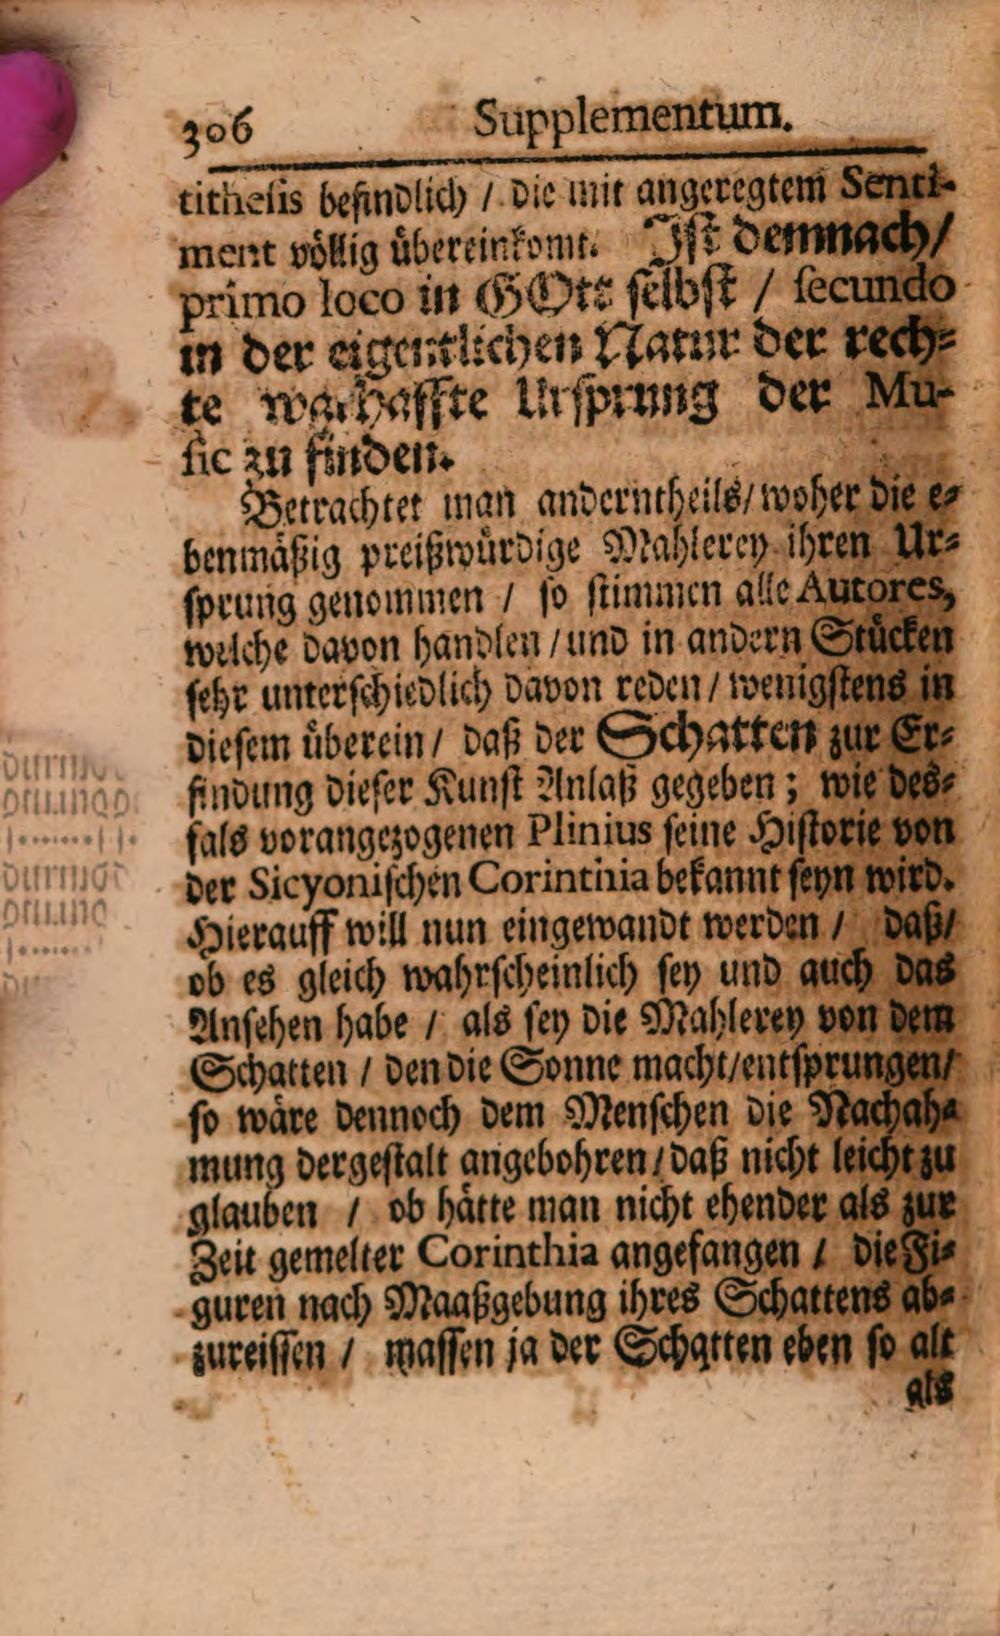 306 Supplementum.
tithesis befindlich / die mit angeregtem Senti-
ment völlig übereinkomt. Ist demnach/
primo loco in GOtt selbst / secundo
in der eigentlichen Natur der rech-
te warhaffte Ursprung der Mu-
sic zu finden.
Betrachtet man anderntheils/woher die e-
benmäßig preißwürdige Mahlerey ihren Ur-
sprung genommen / so stimmen alle Autores,
welche davon handlen/und in andern Stücken
sehr unterschiedlich davon reden/wenigstens in
diesem überein/ daß der Schatten zur Er-
findung dieser Kunst Anlaß gegeben; wie des-
fals vorangezogenen Plinius seine Historie von
der Sicyonischen Corinthia bekannt seyn wird.
Hierauff will nun eingewandt werden / daß/
ob es gleich wahrscheinlich sey und auch das
Ansehen habe / als sey die Mahlerey von dem
Schatten / den die Sonne macht/entsprungen/
so wäre dennoch dem Menschen die Nachah-
mung dergestalt angebohren/daß nicht leicht zu
glauben / ob hätte man nicht ehender als zur
Zeit gemelter Corinthia angefangen / die Fi-
guren nach Maaßgebung ihres Schattens ab-
zureissen / massen ja der Schatten eben so alt
als